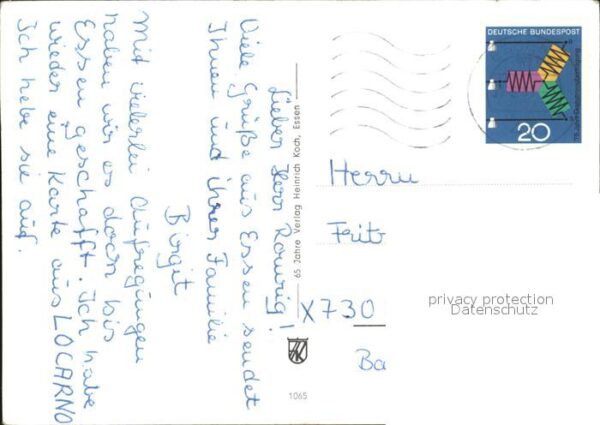 Lieber Herr Rowrig!
Viele Grüße aus Essen sendet
Ihnen und ihrer Familie
Birgit
Mit vielerlei Aufregungen
haben wir es doch bis
Essen geschafft. Ich habe
wieder eine Karte aus LOCARNO
Ich hebe sie auf.
65 Jahre Verlag Heinrich Koch, Essen
1065
DEUTSCHE BUNDESPOST
20
Herrn
Fritz
X730
Ba
privacy protection
Datenschutz